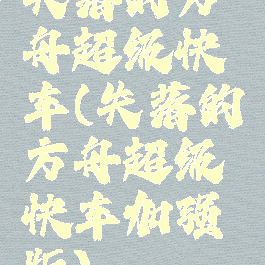 失落的方
舟超级快
车(失落的
方舟超级
快车加强
版)